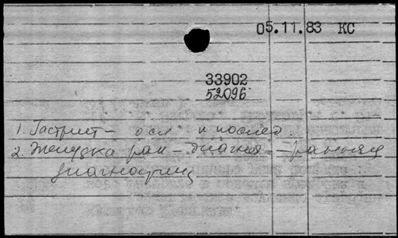 05.11.83 КС
33902
52096
1. Гастрит - осл и послед.
2. Желудка рак - диагн - ранняя
диагностика